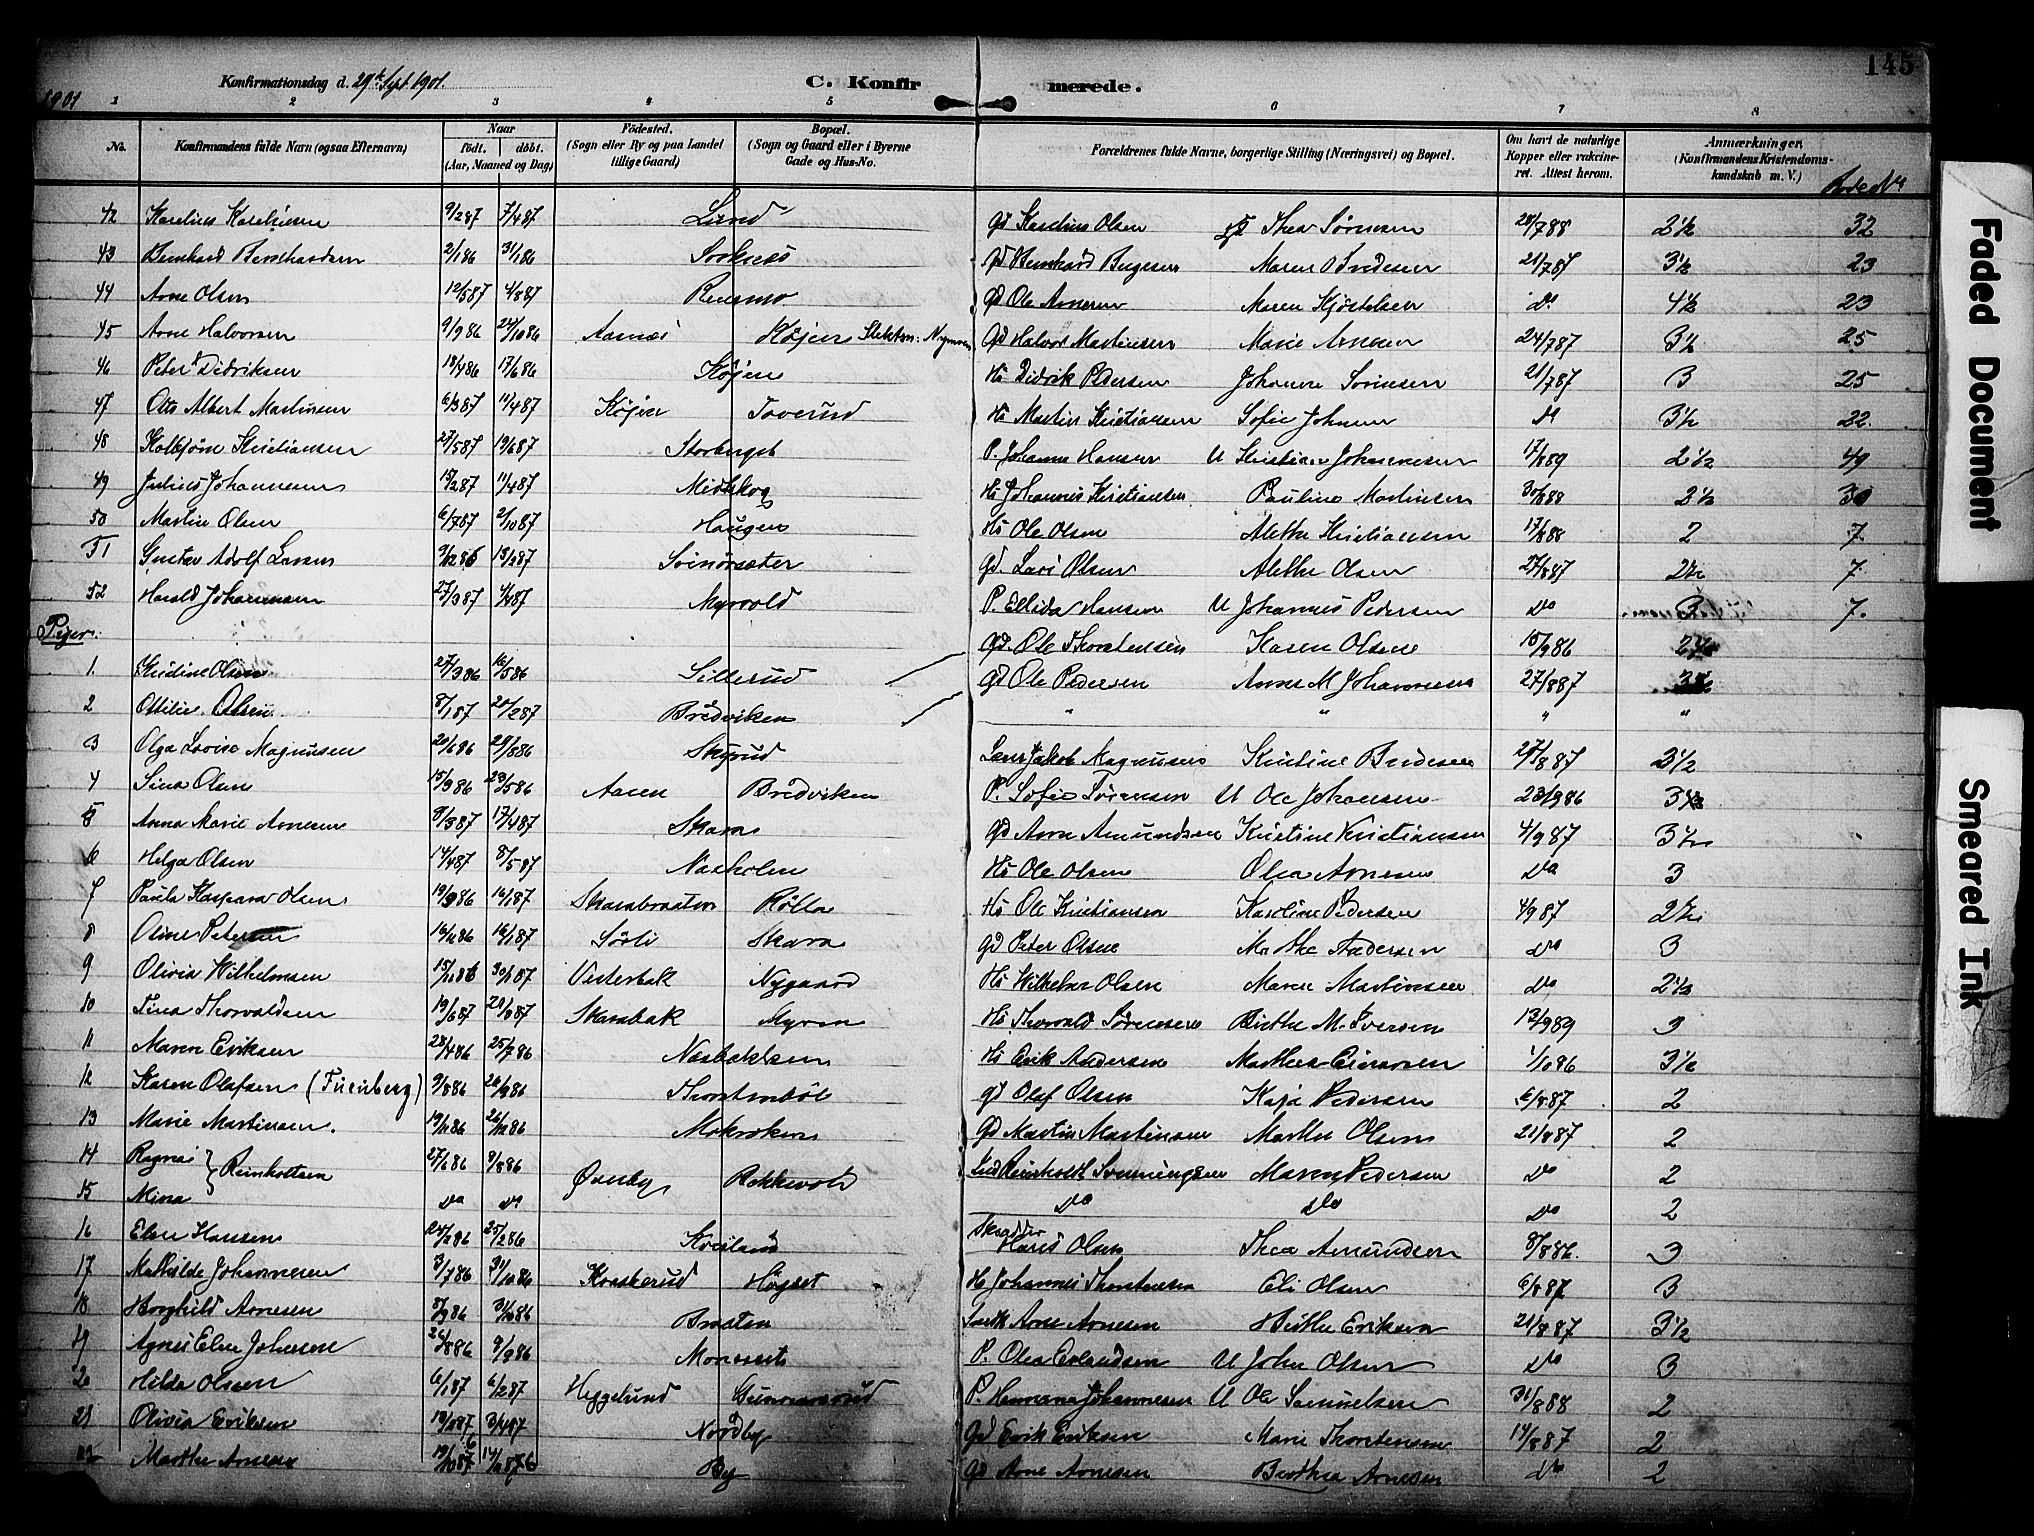 145
Konfirmationsdag d. 29de Sept. 1901. C. Konfirmerede.
1901
1 2 3 4 5 6 7 8
No. Konfirmandens fulde Navn (ogsaa Efternavn) Naar födt. döbt. (Aar, Maaned og Dag) Födested. (Sogn eller By og paa Landet tillige Gaard) Bopæl. (Sogn og Gaard eller i Byerne Gade og Hus-No. Forældrenes fulde Navne, borgerlige Stilling (Næringsvei) og Bopæl. Om havt de naturlige Kopper eller vaccineret. Attest herom. Anmærkninger. (Konfirmandens Kristendomskundskab m. V.)
42 Karelius Kareliusen 9/2 87 7/4 87 Lund Gd Karelius Olsen Thea Sørensen 28/7 88 2½ 32
43 Bernhard Bernhardsen 2/1 86 31/1 86 Gd Bernhard Maren 21/7 87 3½ 23
44 Arne Olsen 12/5 87 4/8 87 Gd Ole Arnesen Maren Kjöstelsen Do 4½ 23
45 Arne Halvorsen 9/9 86 24/10 86 Aamæs Köjen Gd Halvor Martinsen Marie Arnesen 24/7 87 3½ 25
46 Peter Didriksen 18/4 86 17/6 86 Köjen Hs Didrik Pedersen Johanne Sørensen 21/7 87 3 25
47 Otto Albert Martinsen 6/3 87 11/4 87 Köjen Toverud Hs Martin Kristiansen Sofie Johnsen Do 3½ 22
48 Kolbjörn Kristiansen 27/5 87 19/6 87 Storberget P. Johanne Hansen U Kristian Johannesen 17/8 89 2½ 49
49 Julius Johannesen 15/2 87 11/4 87 Midtskog Hs Johannes Kristiansen Pauline Martinsen 30/8 88 2½ 30
50 Martin Olsen 6/7 87 2/10 87 Haugen Hs Ole Olsen Alethe Kristiansen 17/8 88 2 7
51 Gustav Adolf Larsen 9/12 86 13/2 87 Svinörsæter Gd. Lars Olsen Alethe Olsen 27/8 87 2½ 7
52 Harald Johannesen 27/3 87 4/4 87 Myrvold P. Ellida Hansen U Johannes Pedersen Do 3 7
Piger.
1. Kristine Olsen 27/3 86 16/5 86 Sillerud Gd. Ole Thorstensen Karen Olsen 15/9 86
2 Ottilie Olsen 8/1 87 20/2 87 Brödviken Gd Ole Pedersen Anne M Johannesen 27/8 87
3 Olga Lovise Magnusen 20/6 86 29/8 86 Skyrud Lars Jakob Magnusen Kristine Bredesen 27/8 87 3½
4 Sina Olsen 15/3 86 23/5 86 Aasen Brödviken P. Sofie Sörensen U Ole Johansen 23/9 86 3½
5 Anna Marie Arnesen 8/3 87 17/4 87 Skara Gd Arne Amundsen Kristine Kristiansen 4/9 87 3½
6 Helga Olsen 14/4 87 8/5 87 Næsholen Hs Ole Olsen Olea Arnesen Do 3
7 Paula Kaspara Olsen 19/9 86 16/1 87 Skarabraaten Rölla Hs Ole Kristiansen Karoline Pedersen 4/9 87 2½
8 Oline Petersen 16/11 86 16/1 87 Sörli Skara Gd Peter Olsen Mathe Andersen Do 3
9 Olivia Wilhelmsen 15/11 86 30/1 87 Vesterbak Nygaard Hs Wilhelm Olsen Maren Martinsen Do 2½
10 Tina Thorvaldsen 19/6 87 28/8 87 Skarabak Myren Hs. Thorvald Sörensen Birthe M. Iversen 13/9 89 3
11 Maren Eriksen 28/4 86 25/7 86 Næsbakken Hs Erik Andersen Mathea Einarsen 1/10 86 3½
12 Karen Olafsen (Furuberg) 9/8 86 26/9 86 Thorstenböl Gd Olaf Olsen Kaja Pedersen 6/8 87 2
13 Marie Martinsen. 19/11 86 26/12 86 Gd Martin Martinsen Marthe Olsen 21/8 87 2
14 Ragna } Reinholtsen 27/6 86 8/8 86 Öseby Rokkevold Reinholdt Svenningsen Maren Pedersen Do 2
15 Mina Do Do Do Do Do 2
16 Elen Hansen 24/2 86 25/2 86 Kvisland Skrædder Hans Olsen Thea Amundsen 8/8 86. 3
17 Mathilde Johannesen 3/7 86 31/10 86 Kraskerud Högset Hs Johannes Thorstensen Eli Olsen 6/8 87 3
18 Borghild Arnesen 8/9 86 31/10 86 Braaten Arne Arnesen Birthe Eriksen 21/8 87 3½
19 Agnes Elen Johnsen 26/8 86 9/9 86 Monesset P. Olea Erlandsen U John Olsen Do 3
20 Hilda Olsen 6/1 87 6/2 87 Heggelund Gunnarsrud P. Hermana Johannesen U Ole Samuelsen 31/8 88 2
21 Olivia Eriksen 13/2 87 3/4 87 Nordby Gd Erik Eriksen Marie Thorstensen 14/8 87 2
22 Marthe Arnesen By Gd Arne Arnesen Berthea Arnesen Do 2
Faded Document
Smeared Ink